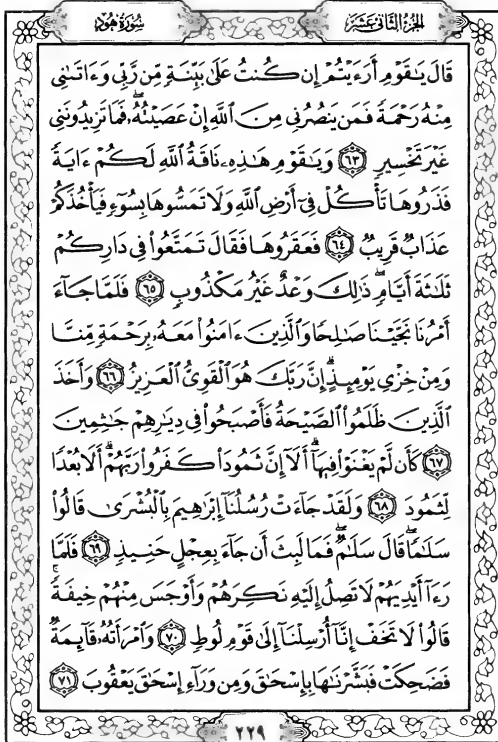 الجزء الثاني عشر
سورة هود
قَالَ يَٰقَوْمِ أَرَءَيْتُمْ إِن كُنتُ عَلَىٰ بَيِّنَةٍ مِّن رَّبِّى وَءَاتَىٰنِى
مِنْهُ رَحْمَةً فَمَن يَنصُرُنِى مِنَ ٱللَّهِ إِنْ عَصَيْتُهُۥ ۖ فَمَا تَزِيدُونَنِى
غَيْرَ تَخْسِيرٍ ٦٣ وَيَٰقَوْمِ هَٰذِهِۦ نَاقَةُ ٱللَّهِ لَكُمْ ءَايَةً
فَذَرُوهَا تَأْكُلْ فِىٓ أَرْضِ ٱللَّهِ وَلَا تَمَسُّوهَا بِسُوٓءٍ فَيَأْخُذَكُمْ
عَذَابٌ قَرِيبٌ ٦٤ فَعَقَرُوهَا فَقَالَ تَمَتَّعُوا۟ فِى دَارِكُمْ
ثَلَٰثَةَ أَيَّامٍ ۖ ذَٰلِكَ وَعْدٌ غَيْرُ مَكْذُوبٍ ٦٥ فَلَمَّا جَآءَ
أَمْرُنَا نَجَّيْنَا صَٰلِحًا وَٱلَّذِينَ ءَامَنُوا۟ مَعَهُۥ بِرَحْمَةٍ مِّنَّا
وَمِنْ خِزْىِ يَوْمِئِذٍ ۗ إِنَّ رَبَّكَ هُوَ ٱلْقَوِىُّ ٱلْعَزِيزُ ٦٦ وَأَخَذَ
ٱلَّذِينَ ظَلَمُوا۟ ٱلصَّيْحَةُ فَأَصْبَحُوا۟ فِى دِيَٰرِهِمْ جَٰثِمِينَ
٦٧ كَأَن لَّمْ يَغْنَوْا۟ فِيهَآ ۗ أَلَآ إِنَّ ثَمُودَا۟ كَفَرُوا۟ رَبَّهُمْ ۗ أَلَا بُعْدًا
لِّثَمُودَ ٦٨ وَلَقَدْ جَآءَتْ رُسُلُنَآ إِبْرَٰهِيمَ بِٱلْبُشْرَىٰ قَالُوا۟
سَلَٰمًا ۖ قَالَ سَلَٰمٌ ۖ فَمَا لَبِثَ أَن جَآءَ بِعِجْلٍ حَنِيذٍ ٦٩ فَلَمَّا
رَءَآ أَيْدِيَهُمْ لَا تَصِلُ إِلَيْهِ نَكِرَهُمْ وَأَوْجَسَ مِنْهُمْ خِيفَةً ۚ
قَالُوا۟ لَا تَخَفْ إِنَّآ أُرْسِلْنَآ إِلَىٰ قَوْمِ لُوطٍ ٧٠ وَٱمْرَأَتُهُۥ قَآئِمَةٌ
فَضَحِكَتْ فَبَشَّرْنَٰهَا بِإِسْحَٰقَ وَمِن وَرَآءِ إِسْحَٰقَ يَعْقُوبَ ٧١
٢٢٩